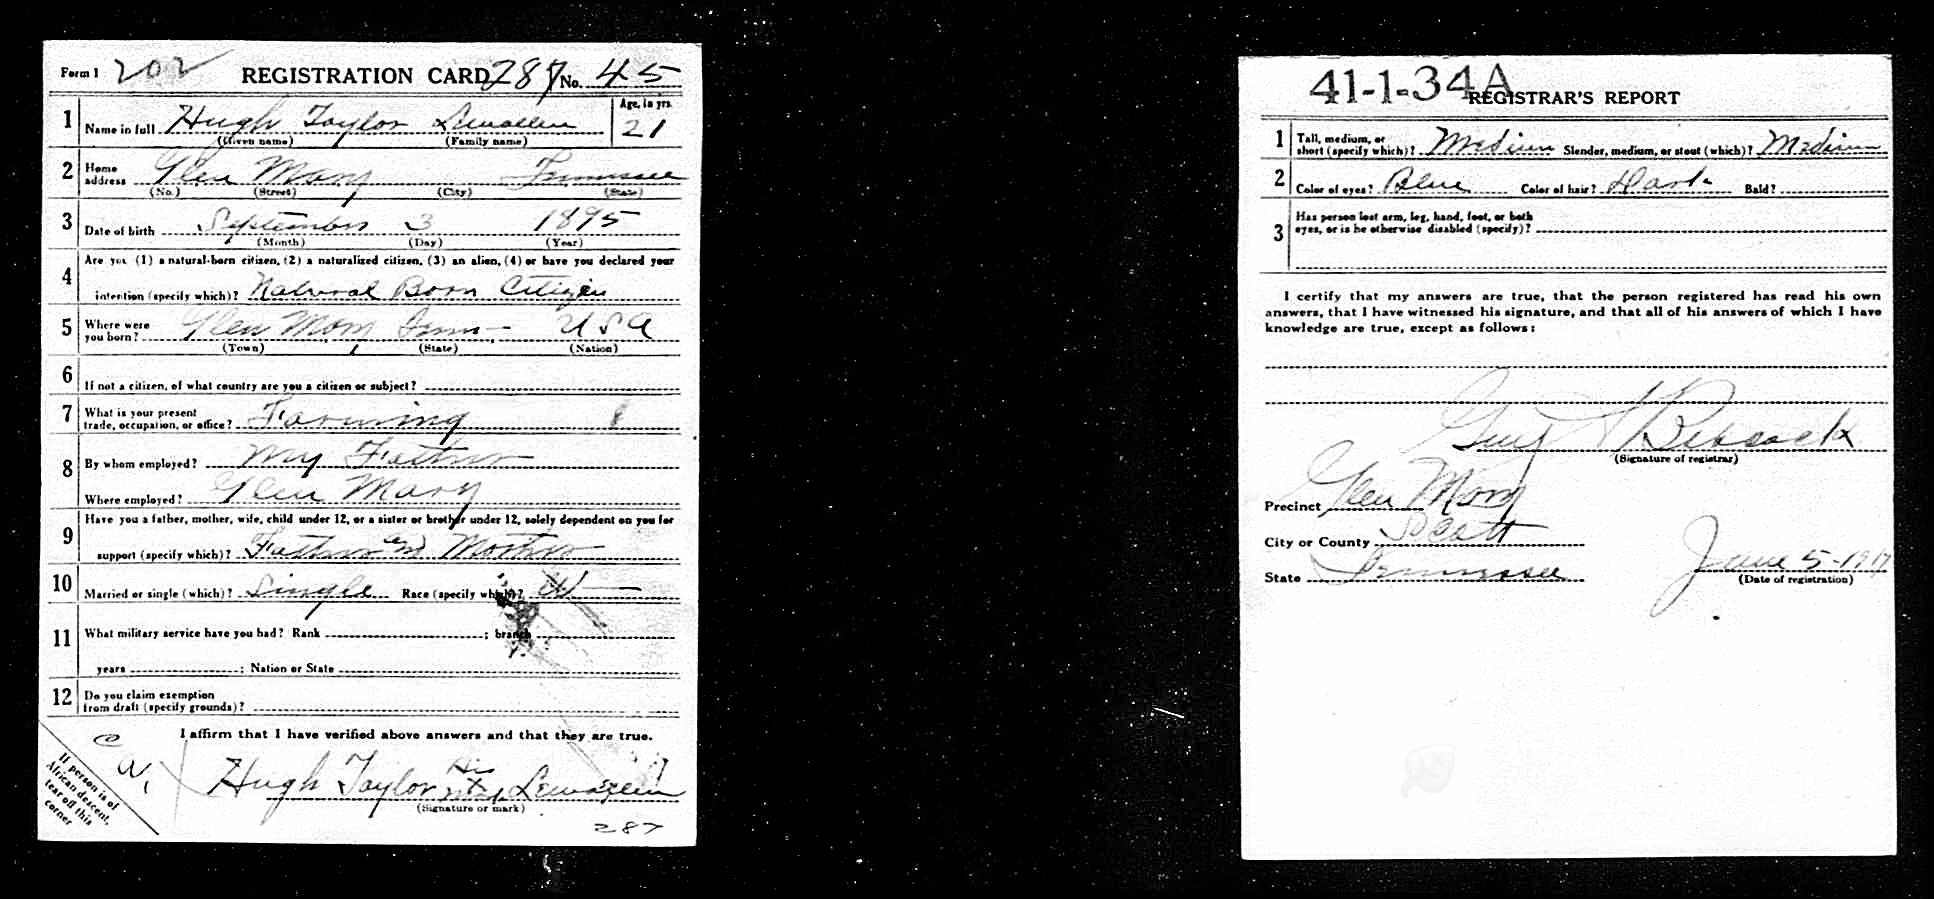 Form 1 202 REGISTRATION CARD 287 No. 45
1 Name in full Hugh Taylor Lewallen Age, in yrs. 21
(Given name) (Family name)
2 Home address Glen Mary Tennessee
(No.) (Street) (City) (State)
3 Date of birth September 3 1895
(Month) (Day) (Year)
4 Are you (1) a natural-born citizen, (2) a naturalized citizen, (3) an alien, (4) or have you declared your
intention (specify which)? Natural Born Citizen
5 Where were you born? Glen Mary Tenn- USA
(Town) (State) (Nation)
6 If not a citizen, of what country are you a citizen or subject?
7 What is your present
trade, occupation, or office? Farming
8 By whom employed? My Father
Where employed? Glen Mary
9 Have you a father, mother, wife, child under 12, or a sister or brother under 12, solely dependent on you for
support (specify which)? Father and Mother
10 Married or single (which)? Single Race (specify which)? W
11 What military service have you had? Rank ; branch
years ; Nation or State
12 Do you claim exemption
from draft (specify grounds)?
I affirm that I have verified above answers and that they are true.
If person is of
African descent,
tear off this
corner
Hugh Taylor His x Mark Lewallen
(Signature or mark)
287
41-1-34A
REGISTRAR'S REPORT
1 Tall, medium, or
short (specify which)? Medium Slender, medium, or stout (which)? Medium
2 Color of eyes? Blue Color of hair? Dark Bald?
3 Has person lost arm, leg, hand, foot, or both
eyes, or is he otherwise disabled (specify)?
I certify that my answers are true, that the person registered has read his own
answers, that I have witnessed his signature, and that all of his answers of which I have
knowledge are true, except as follows:
Guy
(Signature of registrar)
Precinct Glen Mary
City or County Scott
State Tennessee
June 5-1917
(Date of registration)